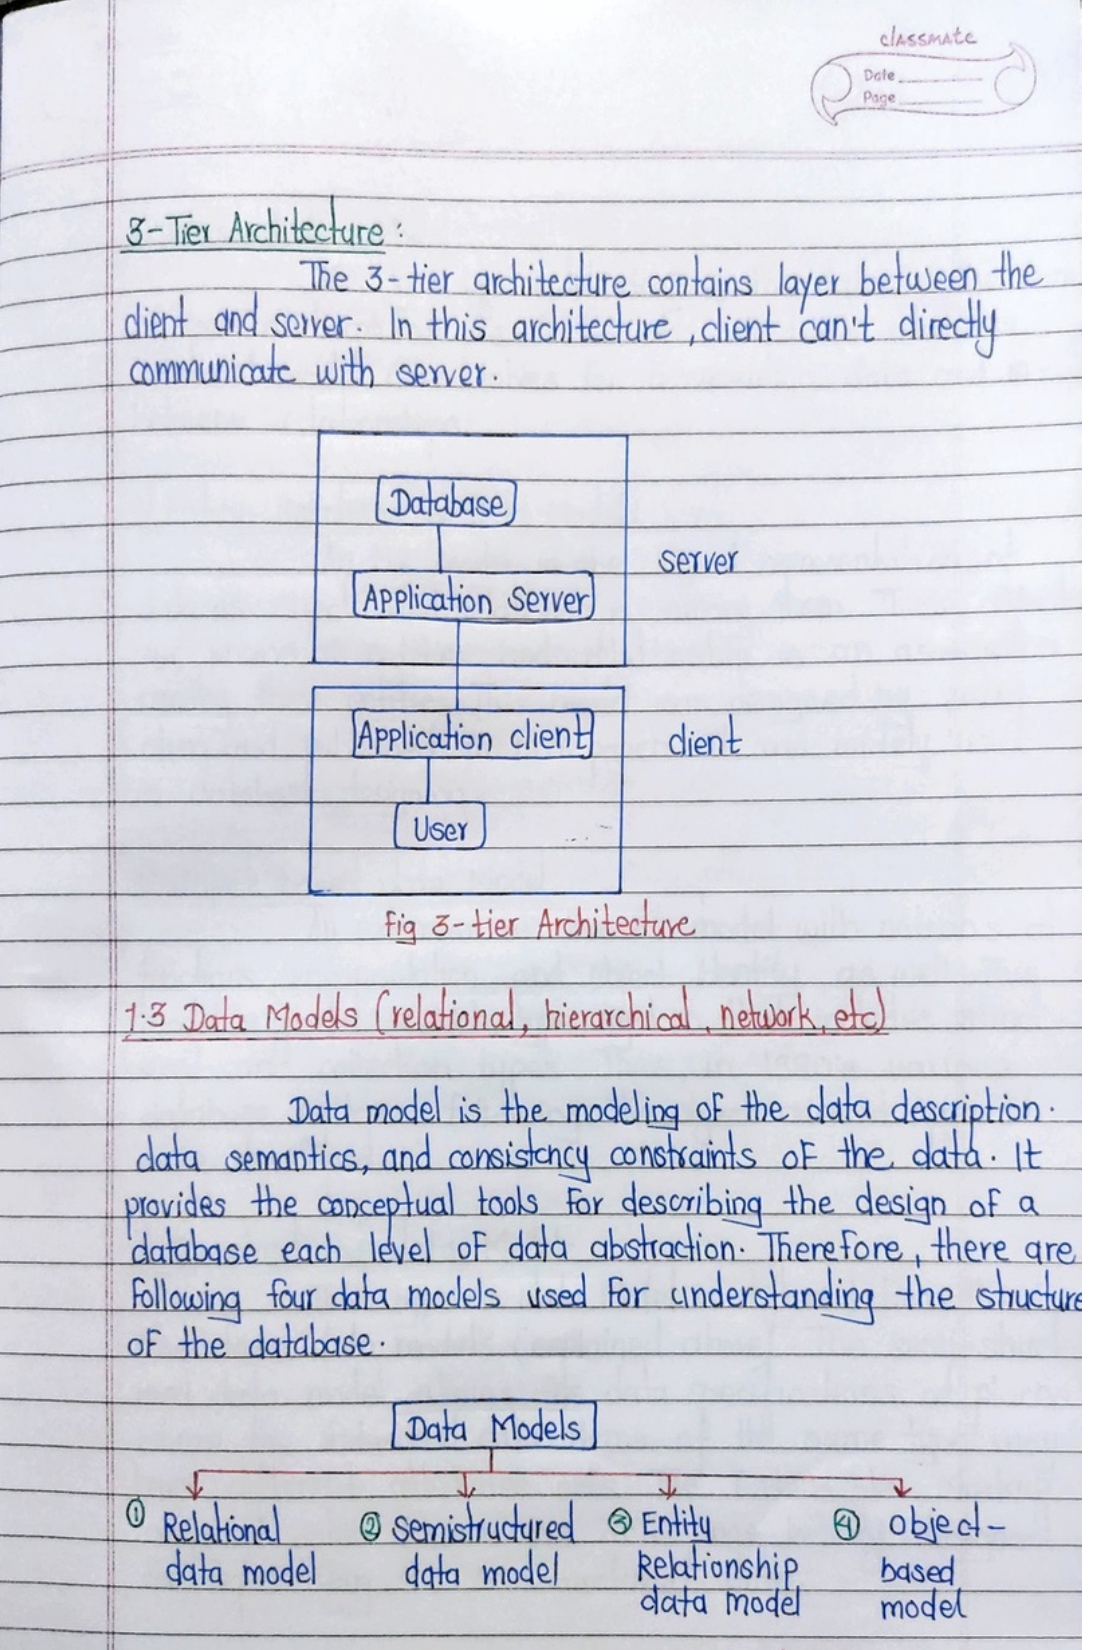 classmate
Date
Page
3-Tier Architecture :
The 3-tier architecture contains layer between the
client and server. In this architecture, client can't directly
communicate with server.
Database
server
Application Server
Application client
client
User
fig 3-tier Architecture
1.3 Data Models (relational, hierarchical, network, etc)
Data model is the modeling of the data description.
data semantics, and consistency constraints of the data. It
provides the conceptual tools for describing the design of a
database each level of data abstraction. Therefore, there are
following four data models used for understanding the structure
of the database.
Data Models
① Relational ② semistructured ③ Entity ④ object-
data model data model Relationship based
data model model